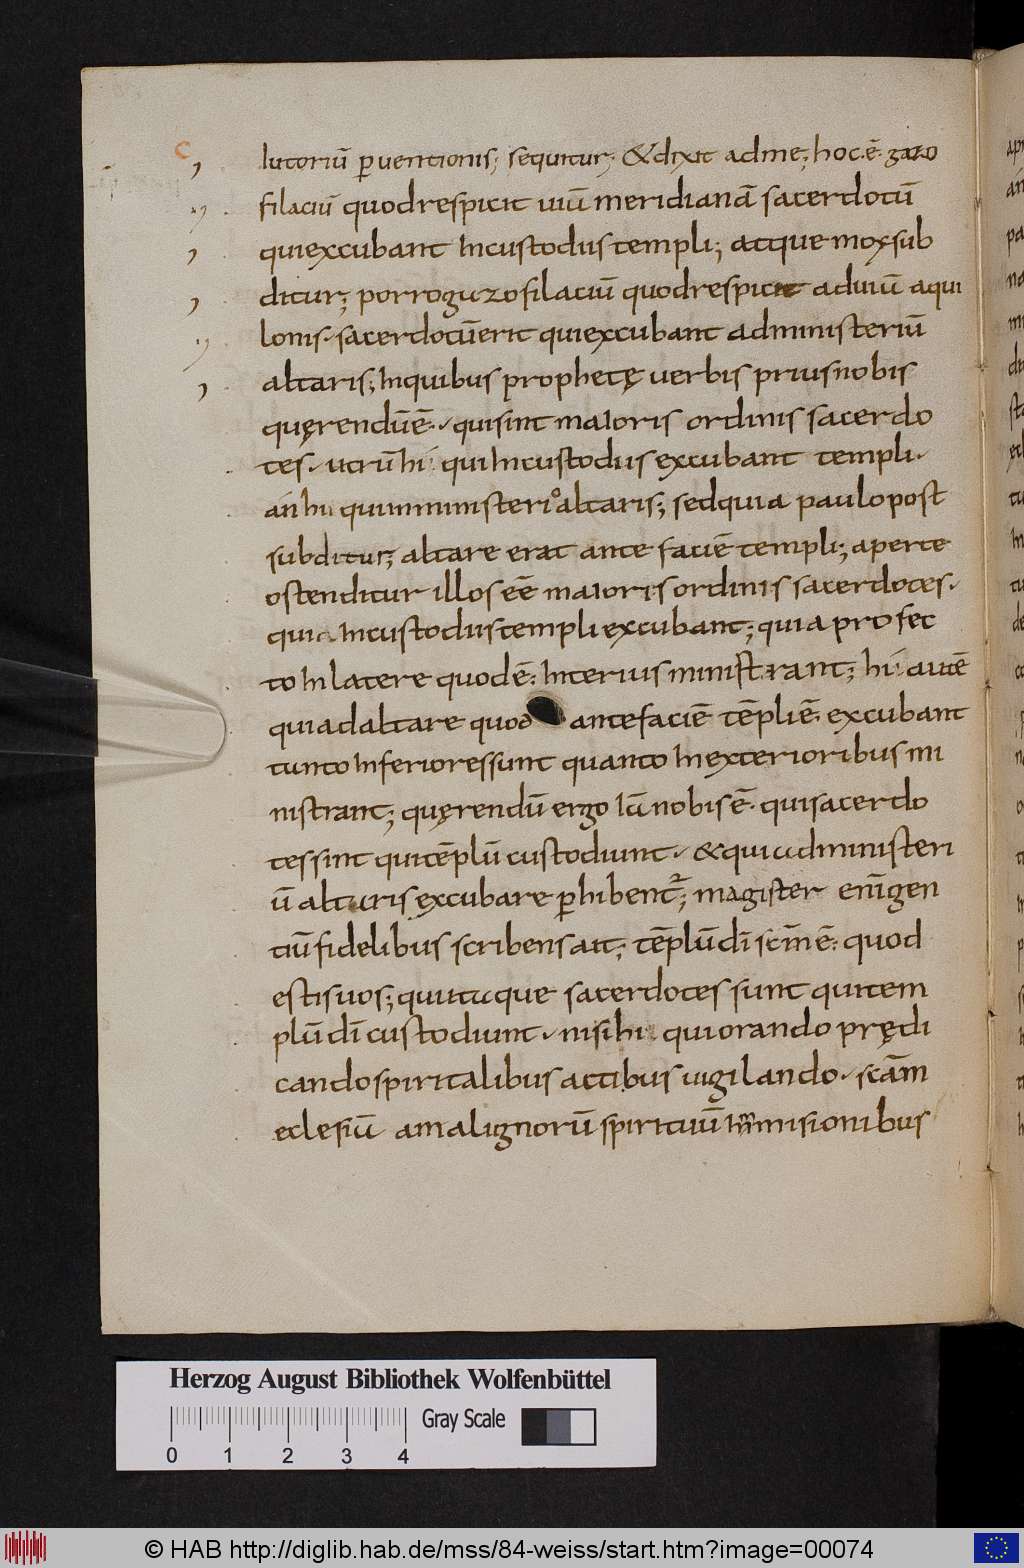 lutoriū ꝑuentionis; sequitur; &dixit adme; hoc.ē. gazo
filaciū quodrespicit uiā meridianā sacerdotū
quiexcubant Incustodiis templi; atque mox sub
ditur; porro gazofilaciū quodrespicit aduiā aqui
lonis. sacerdotū erit quiexcubant administeriū
altaris; Inquibus prophetę uerbis prius nobis
quęrendū ē. quisint maioris ordinis sacerdo
tes. utrū hi qui Incustodiis excubant templi.
an hii quiinministerio altaris; sedquia paulopost
subditur; altare erat ante faciē templi; aperte
ostenditur illos eē maioris ordinis sacerdotes.
qui Incustodiis templi excubant; quia profec
to In latere quodē. Interius ministrant; hi autē
quiadaltare quod antefaciē tēpli ē. excubant
tanto Inferiores sunt quanto In exterioribus mi
nistrant; quęrendū ergo Iā nobis ē. quisacerdo
tes sint quitēplū custodiunt. &qui administeri
ū altaris ęxcubare ꝑhibent᷑; magister enī gen
tiū fidelibus scribens ait; tēplū dī sc̄m ē. quod
estis uos; qui itaque sacerdotes sunt quitem
plū dī custodiunt. nisi hi qui orando prędi
cando spiritalibus actibus uigilando. sc̄am
eclesiā amalignorū spirituū Inmisionibus
Herzog August Bibliothek Wolfenbüttel
Gray Scale
0 1 2 3 4
© HAB http://diglib.hab.de/mss/84-weiss/start.htm?image=00074